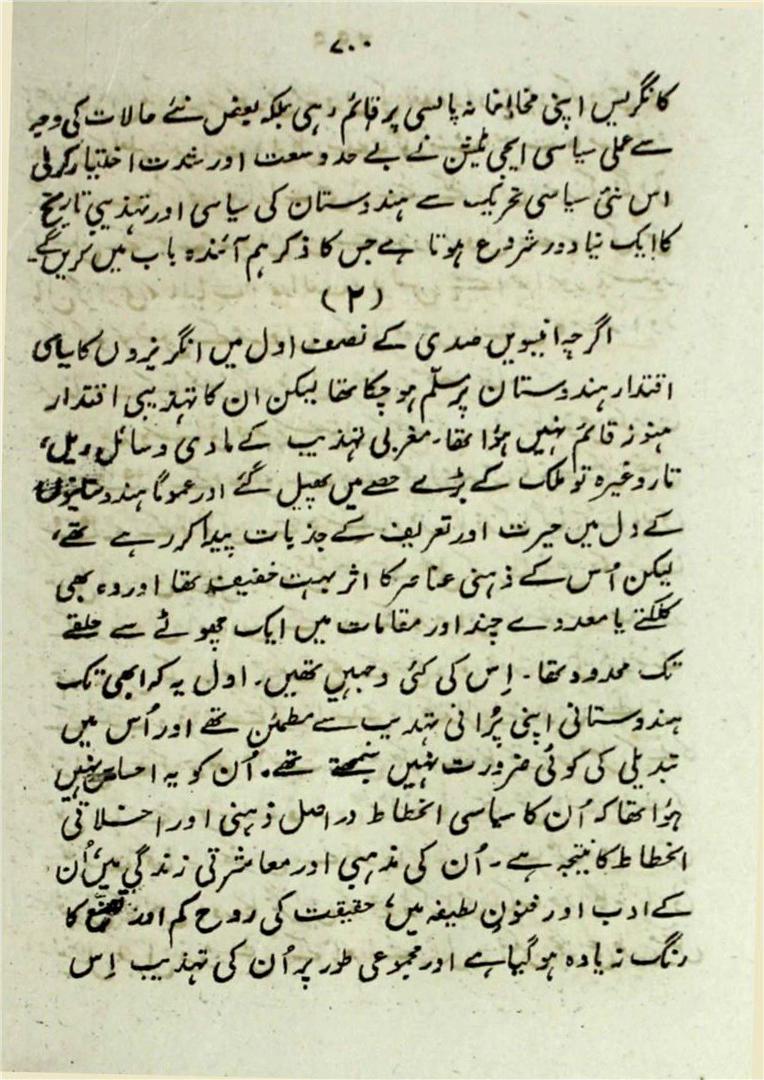 ۷۰۰
کانگریس اپنی مخالفانہ پالسی پر قائم رہی بلکہ بعض نئے حالات کی وجہ
سے عملی سیاسی ایجی ٹیشن نے بے حد وسعت اور شدت اختیار کرلی
اس نئی سیاسی تحریک سے ہندوستان کی سیاسی اور تہذیبی تاریخ
کا ایک نیا دور شروع ہوتا ہے جس کا ذکر ہم آئندہ باب میں کریں گے۔
(۲)
اگرچہ انیسویں صدی کے نصف اول میں انگریزوں کا سیاسی
اقتدار ہندوستان پر مسلّم ہو چکا تھا لیکن ان کا تہذیبی اقتدار
ہنوز قائم نہیں ہؤا تھا۔ مغربی تہذیب کے مادی وسائل، ریل،
تار وغیرہ تو ملک کے بڑے حصے میں پھیل گئے اور عموماً ہندوستانیوں
کے دل میں حیرت اور تعریف کے جذبات پیدا کر رہے تھے،
لیکن اُس کے ذہنی عناصر کا اثر بہت خفیف تھا اور وہ بھی
کلکتے یا معدودے چند اور مقامات میں ایک چھوٹے سے حلقے
تک محدود تھا۔ اِس کی کئی وجہیں تھیں۔ اول یہ کہ ابھی تک
ہندوستانی اپنی پُرانی تہذیب سے مطمئن تھے اور اُس میں
تبدیلی کی کوئی ضرورت نہیں سمجھتے تھے۔ اُن کو یہ احساس نہیں
ہؤا تھا کہ اُن کا سیاسی انحطاط دراصل ذہنی اور اخلاقی
انحطاط کا نتیجہ ہے۔ اُن کی مذہبی اور معاشرتی زندگی میں، اُن
کے ادب اور فنونِ لطیفہ میں، حقیقت کی روح کم اور تصنع کا
رنگ زیادہ ہو گیا ہے اور مجموعی طور پر اُن کی تہذیب اِس